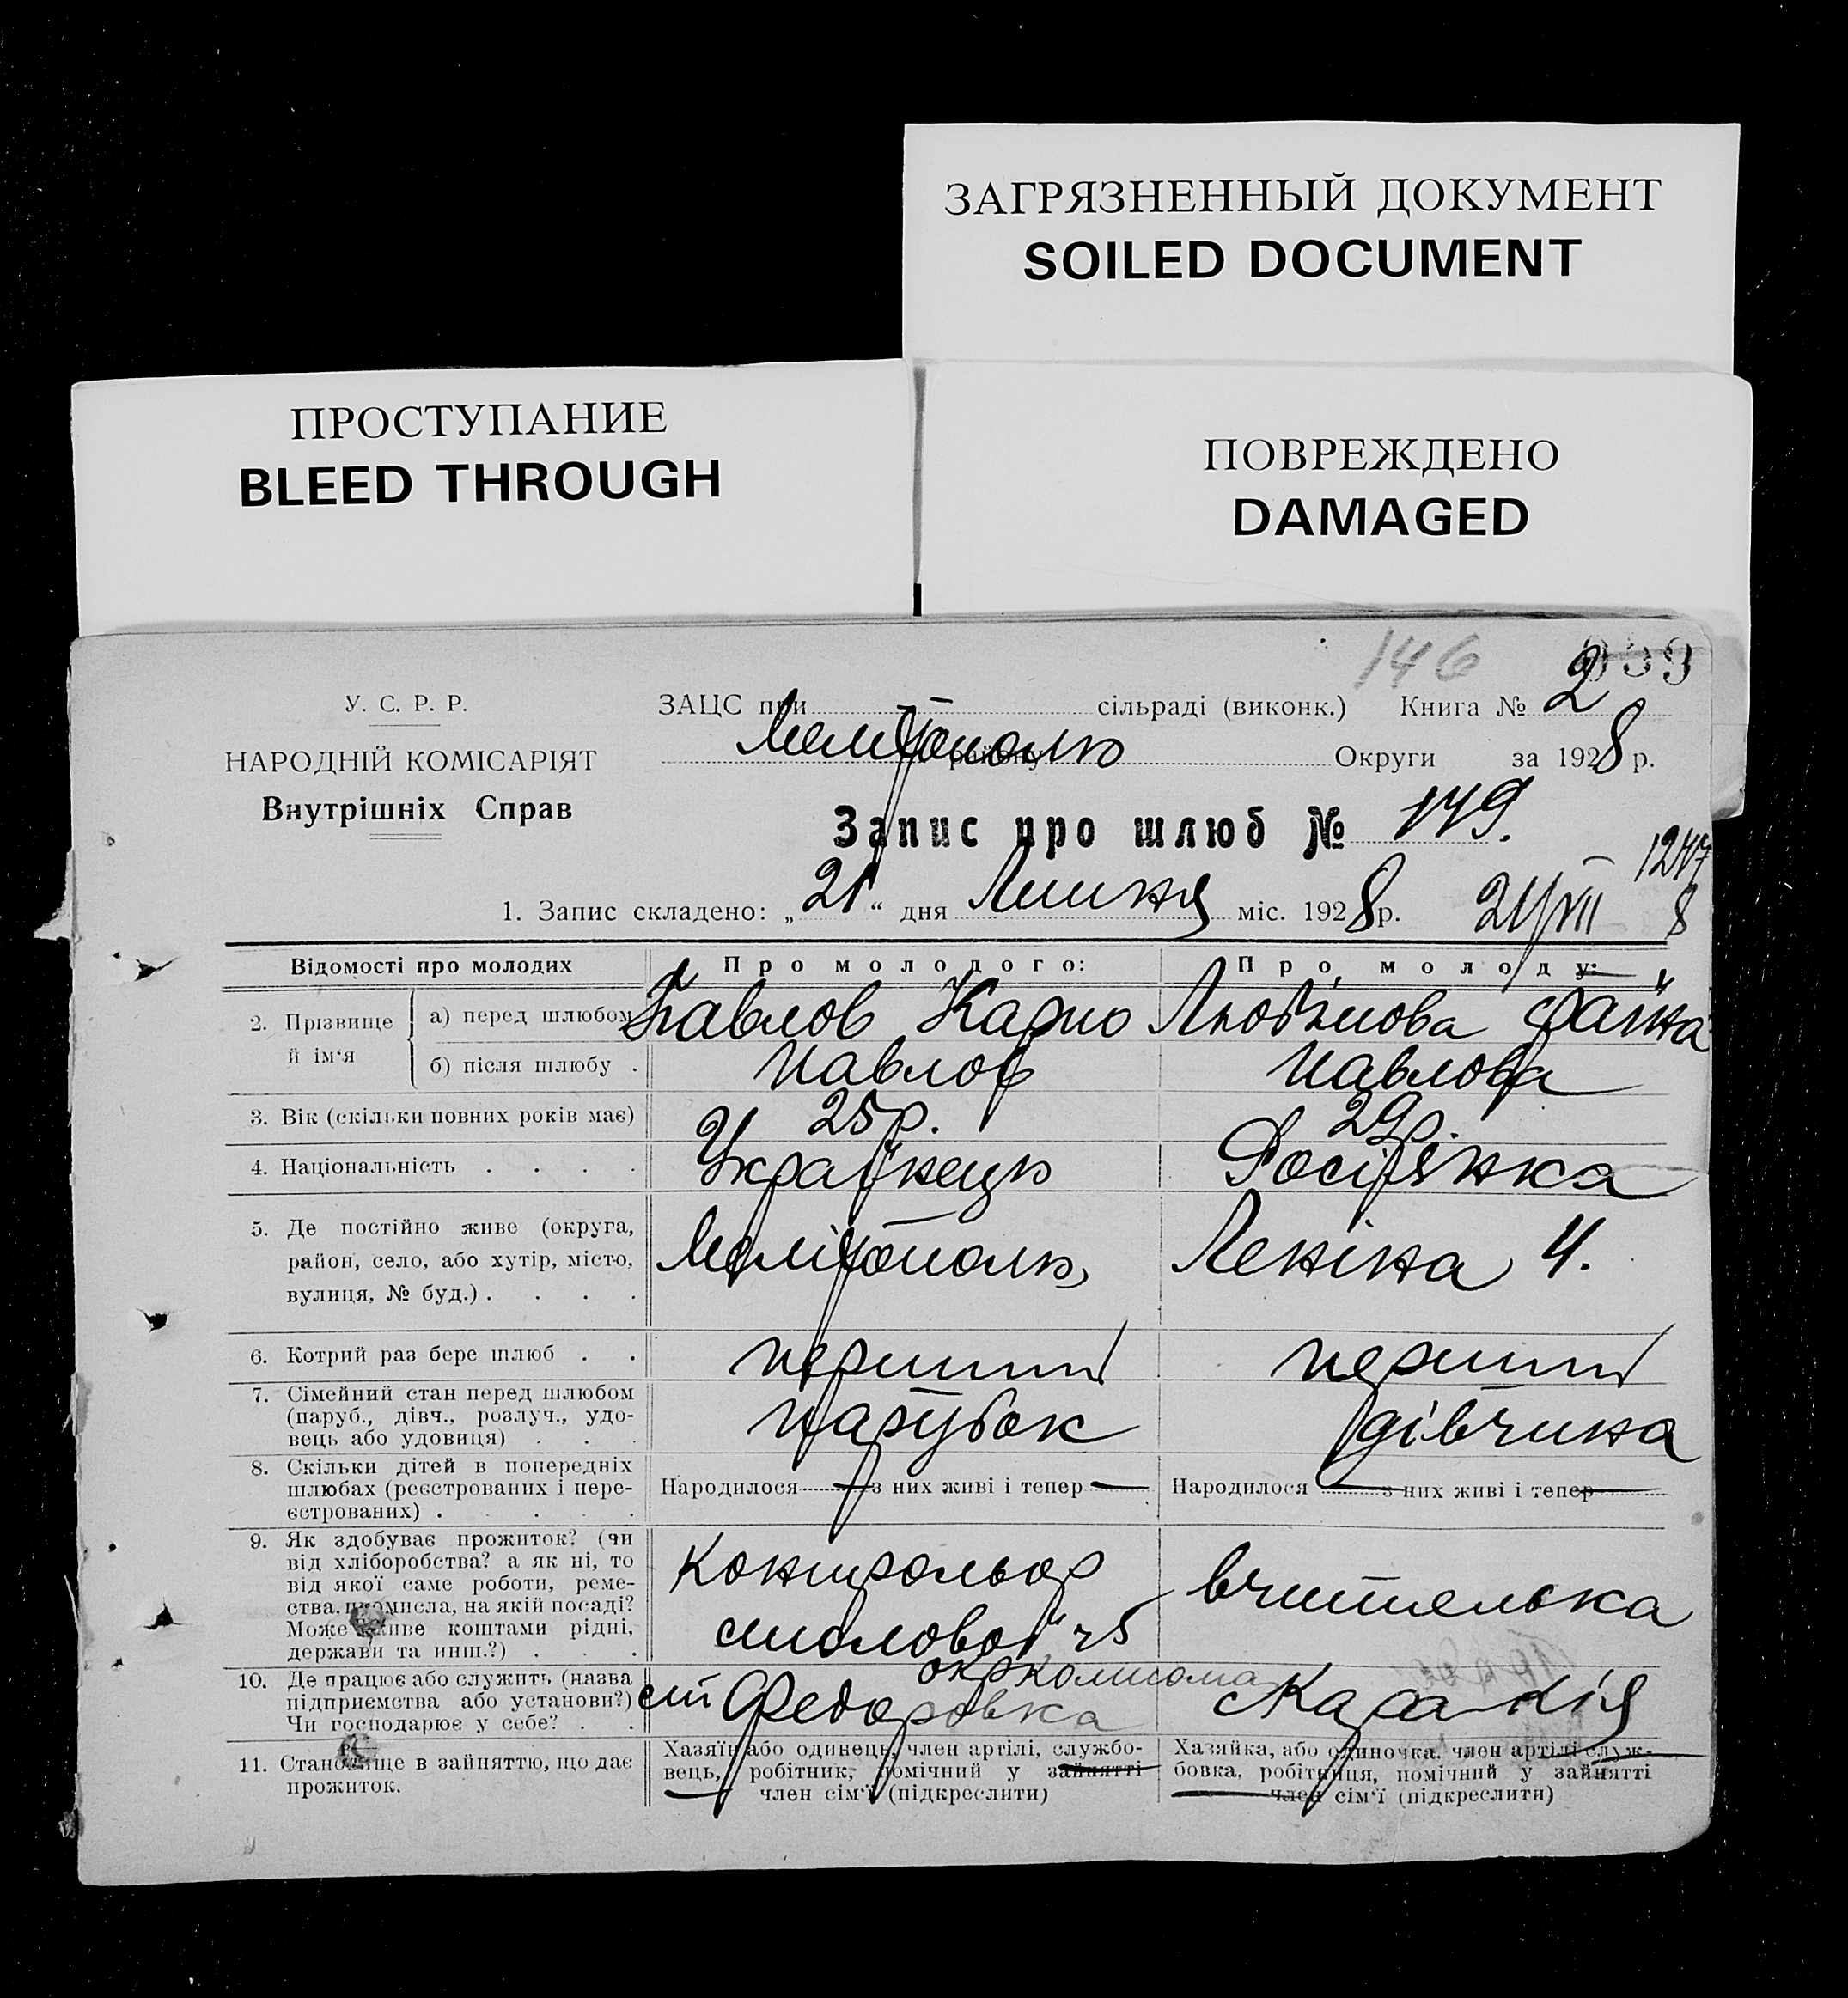 ЗАГРЯЗНЕННЫЙ ДОКУМЕНТ
SOILED DOCUMENT
ПРОСТУПАНИЕ
BLEED THROUGH
ПОВРЕЖДЕНО
DAMAGED
146
У. С. Р. Р.
НАРОДНІЙ КОМІСАРІЯТ
Внутрішніх Справ
ЗАЦС при сільраді (виконк.) Книга № 2
Мелітополь району Округи за 1928 р.
Запис про шлюб № 149.
1. Запис складено: „21“ дня Липня міс. 1928 р. 21/VII 8
Відомості про молодих Про молодого: Про молоду:
2. Прізвище й ім'я
а) перед шлюбом Павлов Карпо Любімова Фаїна
б) після шлюбу . Павлов Павлова
3. Вік (скільки повних років має) 25 р. 29 р.
4. Національність . . . . Українець Росіянка
5. Де постійно живе (округа, район, село, або хутір, місто, вулиця, № буд.) . . . . Мелітополь, Леніна 4.
6. Котрий раз бере шлюб . . перший перший
7. Сімейний стан перед шлюбом (паруб., дівч., розлуч., удовець або удовиця) . . . парубок дівчина
8. Скільки дітей в попередніх шлюбах (реєстрованих і нереєстрованих) . . . . . Народилося — з них живі і тепер — Народилося — з них живі і тепер —
9. Як здобуває прожиток? (чи від хліборобства? а як ні, то від якої саме роботи, ремества, промисла, на якій посаді? Може живе коштами рідні, держави та инш.?) . . . Контрольор вчителька
10. Де працює або служить (назва підприємства або установи?) Чи господарює у себе? . . ст Федоровка
11. Становище в зайняттю, що дає прожиток.
Хазяїн або одинець, член артілі, службовець, робітник, помічний у зайнятті член сім'ї (підкреслити)
Хазяйка, або одиночка, член артілі службовка, робітниця, помічний у зайнятті член сім'ї (підкреслити)